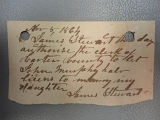 Nov 5 1864
James Stewart this day
authorise the clerk of
Carter County to let
John Murphy have
license to marry my
daughter
James Stewart